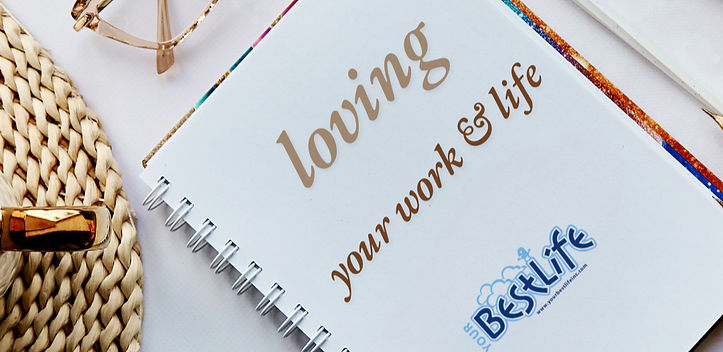 loving
your work & life
YOUR
BESTLIFE
www.yourbestlifeinc.com